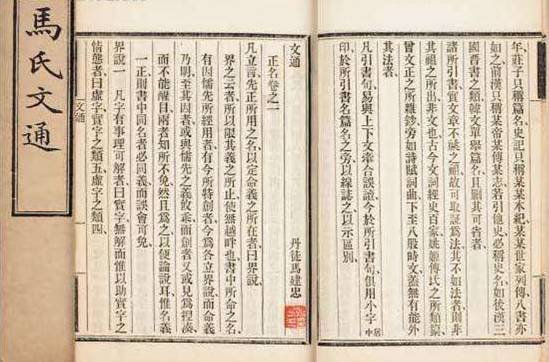 年莊子只稱篇名史記只稱某某本紀某某世家列傳八書亦
如之前漢只稱某帝某傳某志若引他史必稱史名如後漢三
國晉書之類韓文單舉篇名且刪其可省者
諸所引書實文章不祧之祖故可取證為法其不如法者則非
其祖之所出非文也古今文詞經史百家姚姬傳氏之所類纂
曾文正之所雜鈔旁如詩賦詞曲下至八股時文蓋無有能外
其法者
凡引書句易與上下文牽合誤讀今於所引書句俱用小字居中
印於所引書名篇名之旁以線誌之以示區別
文通
丹徒馬建忠
正名卷之一
凡立言先正所用之名以定命義之所在者曰界說
界之云者所以限其義之所止使無越畔也書中所命之名
有因儒先所經用者有今所特創者今為各立界說而命義
乃明至其因者或與儒先之義攸乖而創者又或見為捏湊
而不能醒目兩者知所不免然且為之以便論說耳惟名義
一正則書中同名者必同義而誤會可免
界說一 凡字有事理可解者曰實字無解而惟以助實字之
情態者曰虛字實字之類五虛字之類四
文通
馬氏文通